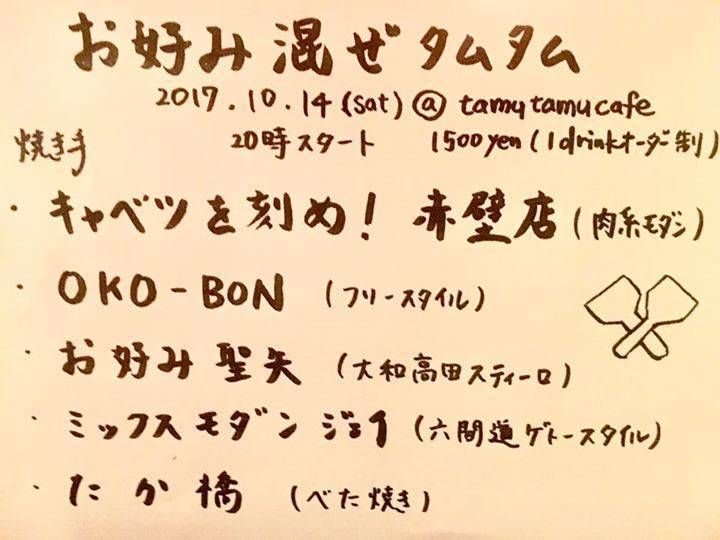 お好み混ぜタムタム
2017.10.14(sat)@tamutamucafe
20時スタート 1500yen(1drinkオーダー制)
焼き手
・キャベツを刻め!赤壁店(肉系モダン)
・OKO-BON(フリースタイル)
・お好み聖矢(大和高田スティーロ)
・ミックスモダンジェイ(六間道ゲトースタイル)
・たか橋(べた焼き)